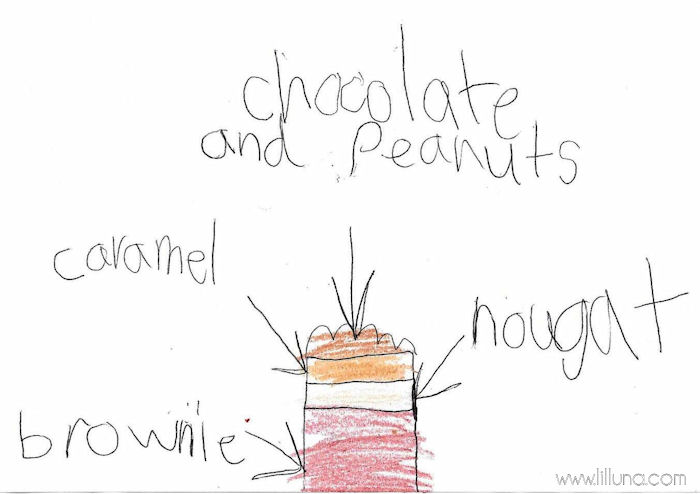 chocolate
and Peanuts
caramel
nougat
brownie
www.lilluna.com